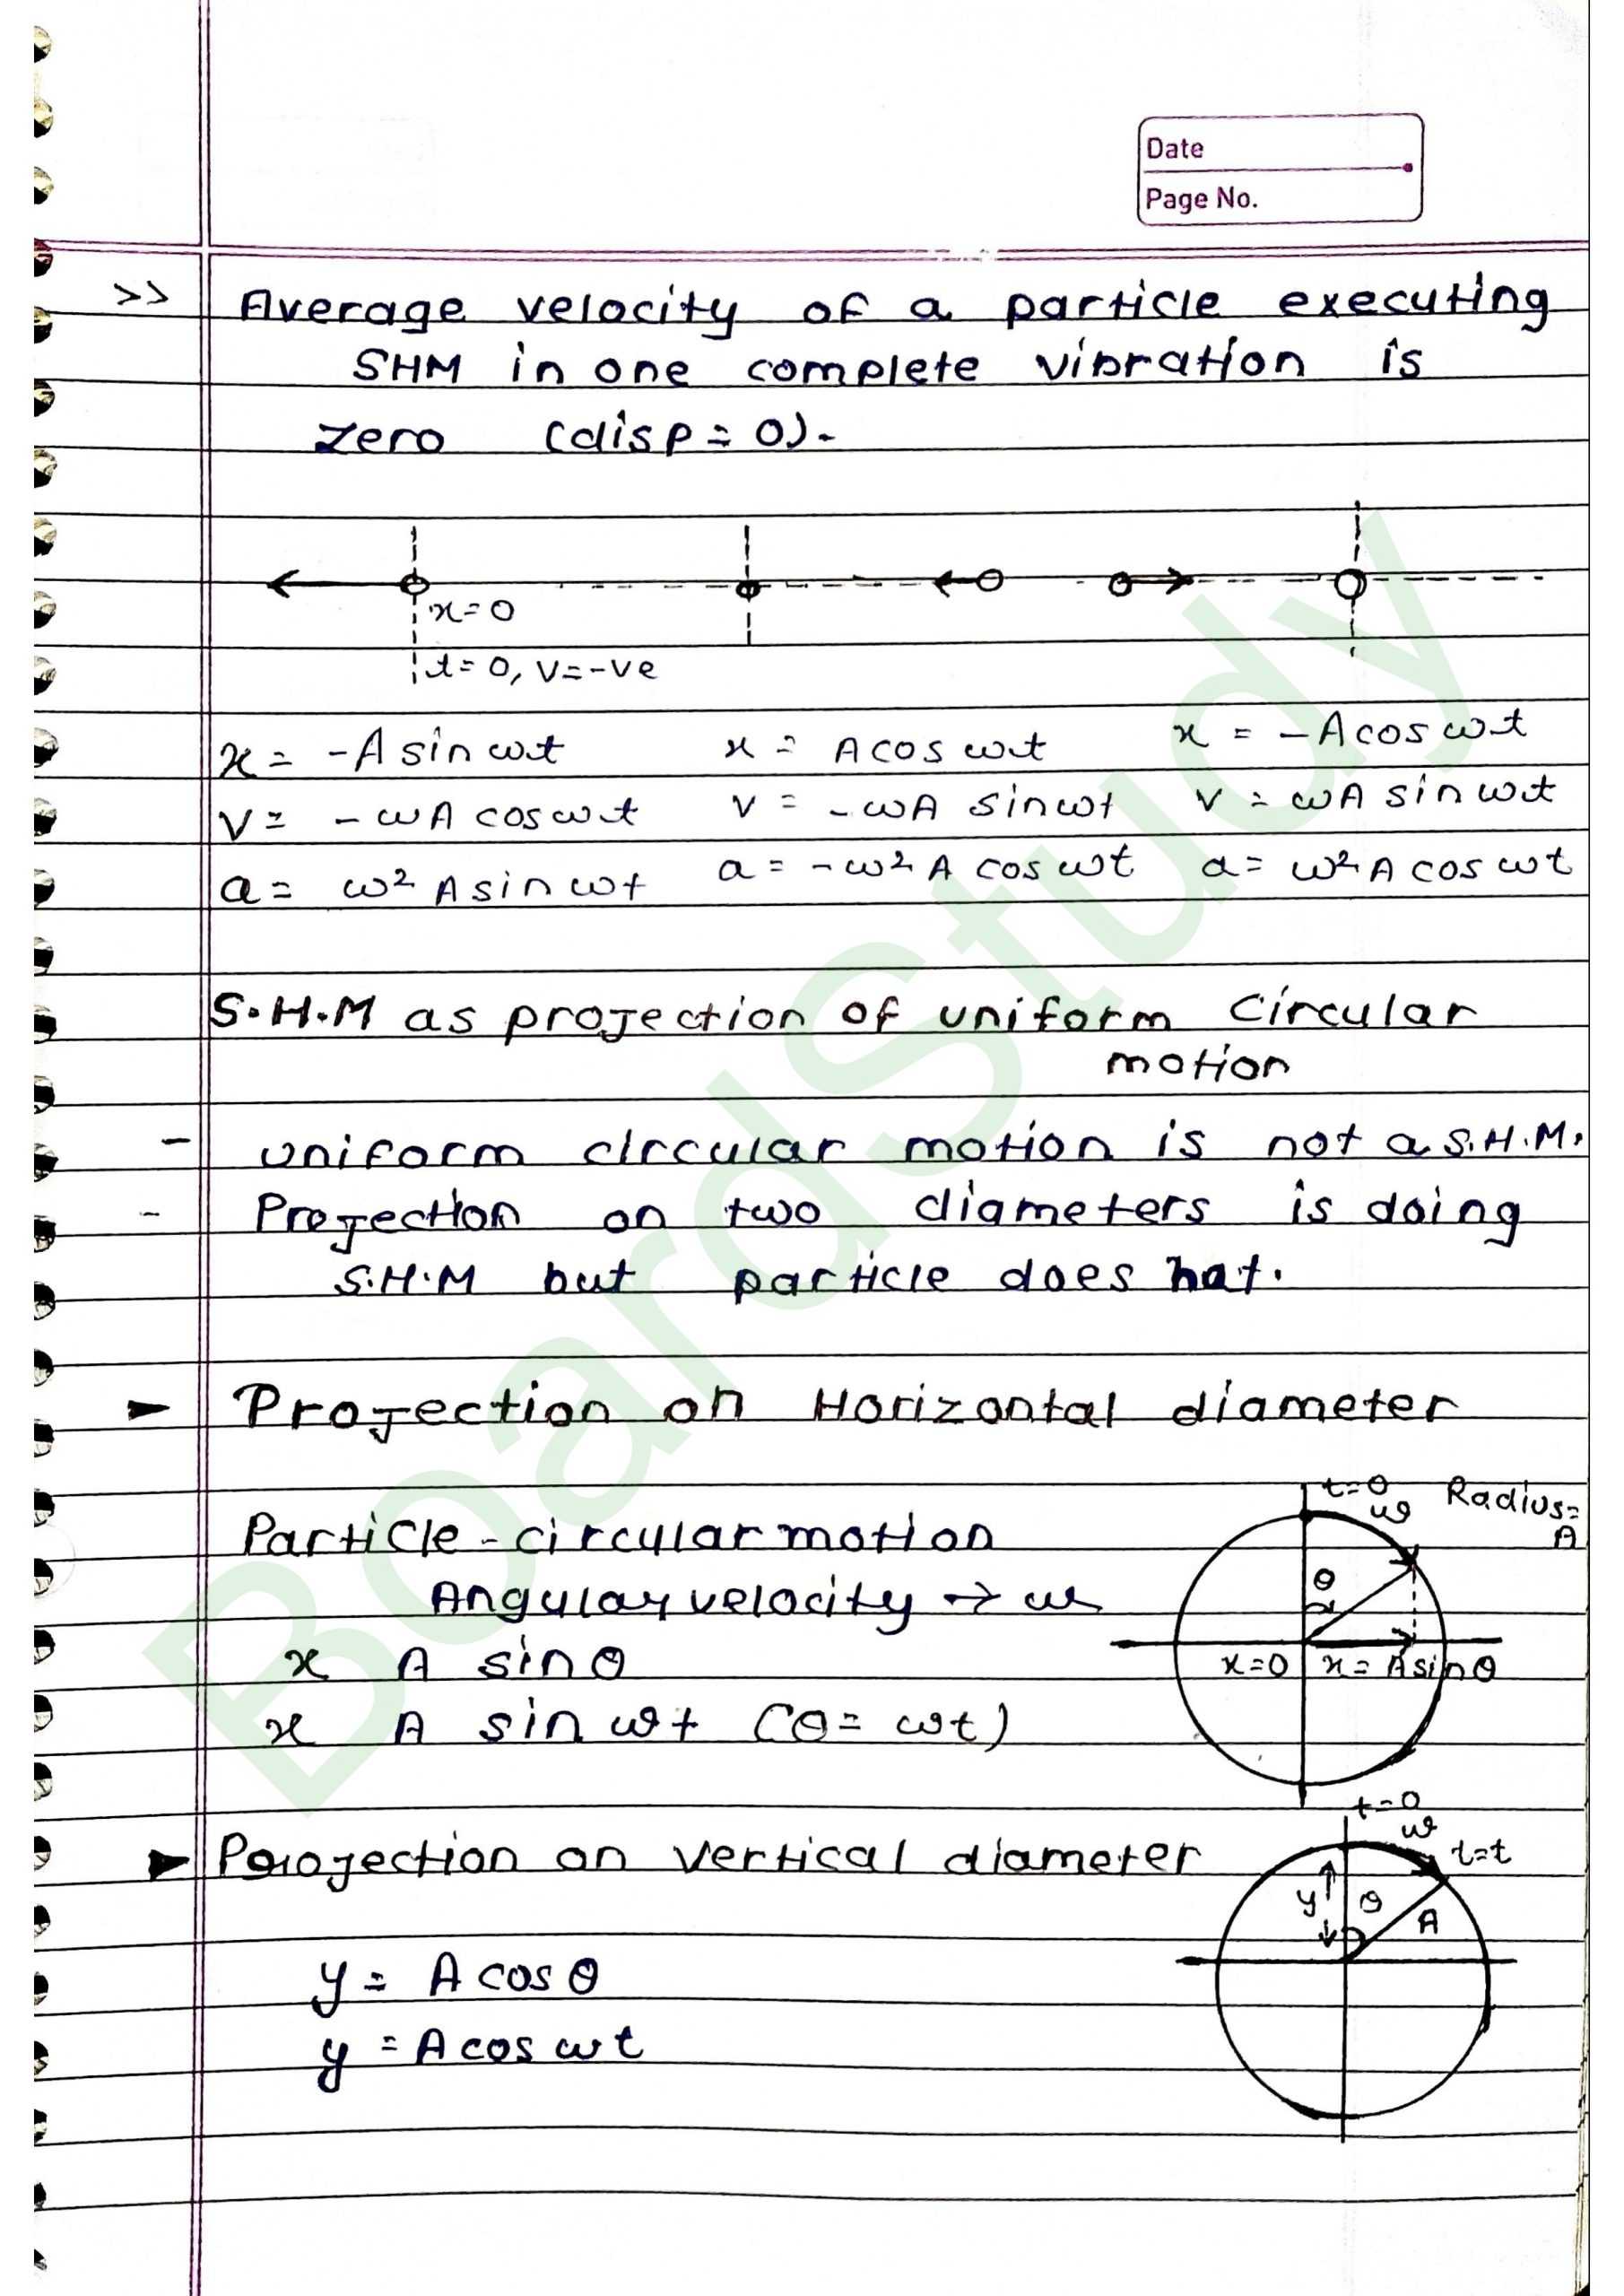 Date
Page No.
>> Average velocity of a particle executing
SHM in one complete vibration is
zero (disp = 0).
x=0
t=0, v=-ve
x = -A sin ωt
v = -ωA cos ωt
a = ω² A sin ωt
x = A cos ωt
v = -ωA sin ωt
a = -ω² A cos ωt
x = -A cos ωt
v = ωA sin ωt
a = ω² A cos ωt
S.H.M as projection of uniform circular
motion
- uniform circular motion is not a S.H.M.
- Projection on two diameters is doing
S.H.M but particle does not.
Projection on Horizontal diameter
Particle - circular motion
Angular velocity → ω
x A sin θ
x A sin ωt (θ = ωt)
t=0
ω
Radius =
A
θ
x=0
x = A sin θ
Projection on vertical diameter
y = A cos θ
y = A cos ωt
t=0
ω
t=t
y
θ
A
BoardStudy